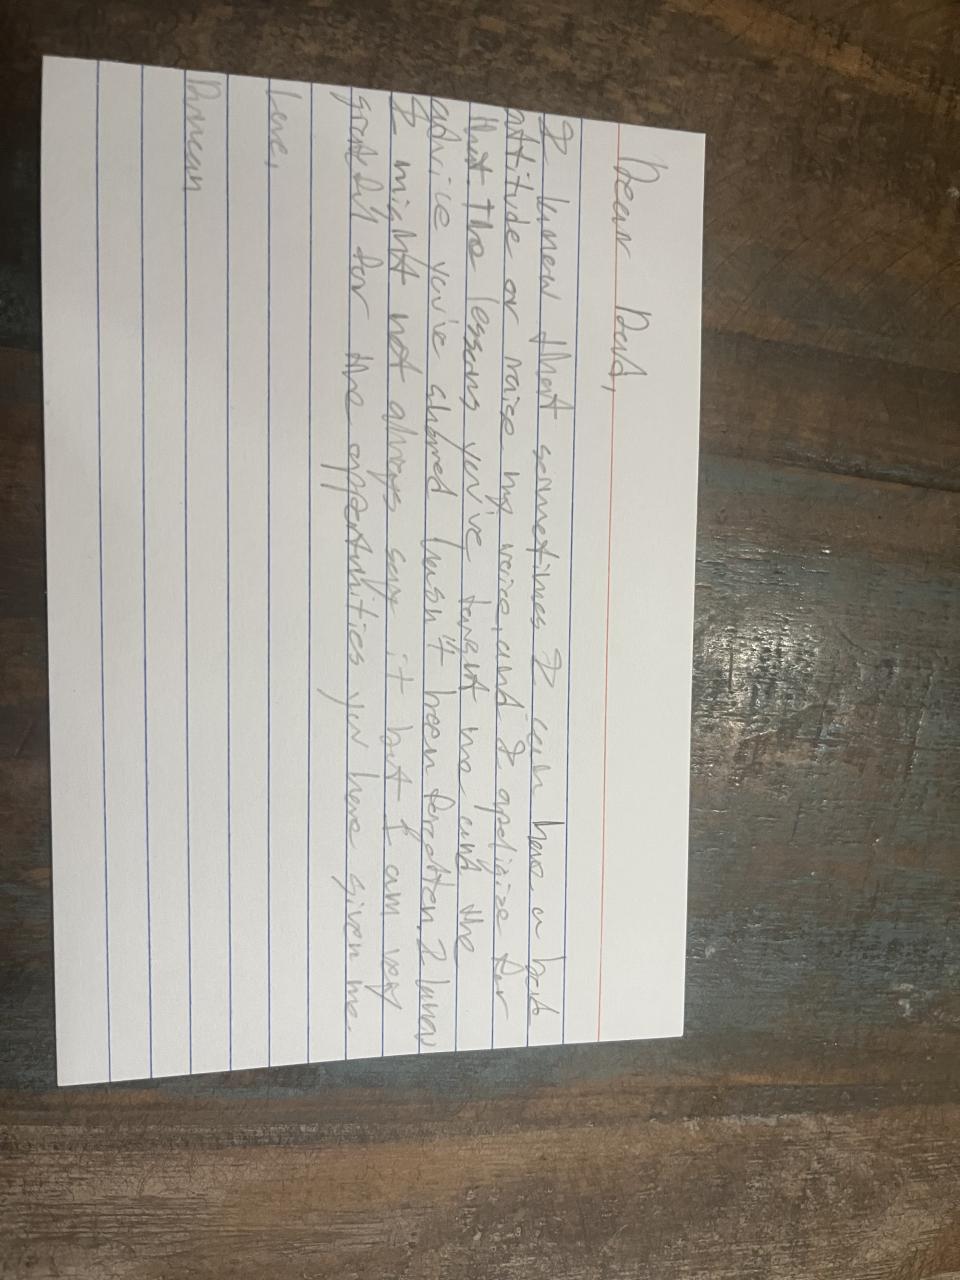 Dear Dad,
I know that sometimes I can have a bad
attitude or raise my voice, and I apoligize for
that. The lessons you've taught me and the
advice you've shared hasn't been forgotten. I know
I might not always say it but I am very
grateful for the oppertunities you have given me.
Love,
Duncan